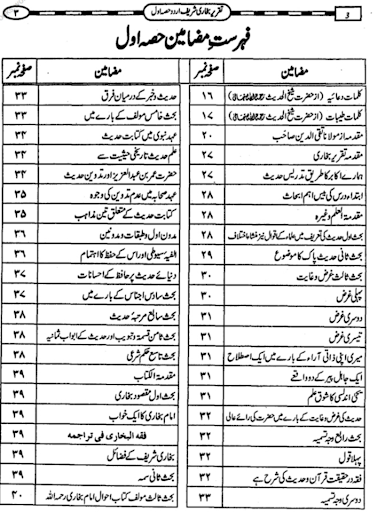 ۳ تقریر بخاری شریف اردو حصہ اول 3
فہرست مضامین حصہ اول
مضامین صفحہ نمبر
کلمات دعائیہ (از حضرت شیخ الحدیث ۱۶
کلمات طیبات (از حضرت شیخ الحدیث ۱۷
مقدمہ از مولانا تقی الدین صاحب ۲۰
مقدمہ تقریر بخاری ۲۷
ہمارے اکابر کا طریق تدریس حدیث ۲۷
ابتداء درس کی بیس اہم ابحاث ۲۸
مقدمۃ العلم وغیرہ ۲۸
بحث اول حدیث کی تعریف میں علماء کے اقوال نیز منشا اختلاف ۲۸
بحث ثانی حدیث پاک کا موضوع ۲۹
بحث ثالث غرض وغایت ۳۰
پہلی غرض ۳۰
دوسری غرض ۳۰
تیسری غرض ۳۱
میری اپنی ذاتی آراء کے بارے میں ایک اصطلاح ۳۱
ایک جاہل پیر کے دو واقعے ۳۱
یحیی اندلسی کا شوق علم ۳۱
حدیث کی غرض وغایت کے بارے میں حضرت کی رائے عالی ۳۲
بحث رابع وجہ تسمیہ ۳۲
پہلا قول ۳۲
فقہ در حقیقت قرآن وحدیث کی شرح ہے ۳۲
دوسری وجہ تسمیہ ۳۳
مضامین صفحہ نمبر
حدیث وخبر کے درمیان فرق ۳۳
بحث خامس مؤلف کے بارے میں ۳۳
عہد نبوی میں کتابت حدیث ۳۴
علم حدیث تاریخی حیثیت سے ۳۴
حضرت عمر بن عبدالعزیز اور تدوین حدیث ۳۴
عہد صحابہ میں عدم تدوین کی وجوہ ۳۵
کتابت حدیث کے متعلق تین مذاہب ۳۵
مدون اول وطبقات ومدونین ۳۶
الفیۃ سیوطی اور اس کے حفظ کا اہتمام ۳۶
دنیائے حدیث پر حافظ کے احسانات ۳۷
بحث سادس اجناس کے بارے میں ۳۷
بحث سابع مرتبہ حدیث ۳۸
بحث ثامن قسمۃ وتبویب اور حدیث کے ابواب ثمانیہ ۳۸
بحث تاسع حکم شرعی ۳۸
مقدمۃ الکتاب ۳۹
بحث اول مقصود بخاری ۳۹
امام بخاری کا ایک خواب ۳۹
فقه البخاری فی تراجمه ۳۹
بخاری شریف کے فضائل ۳۹
بحث ثانی سمہ ۳۹
بحث ثالث مؤلف کتاب احوال امام بخاری رحمہ اللہ ۴۰